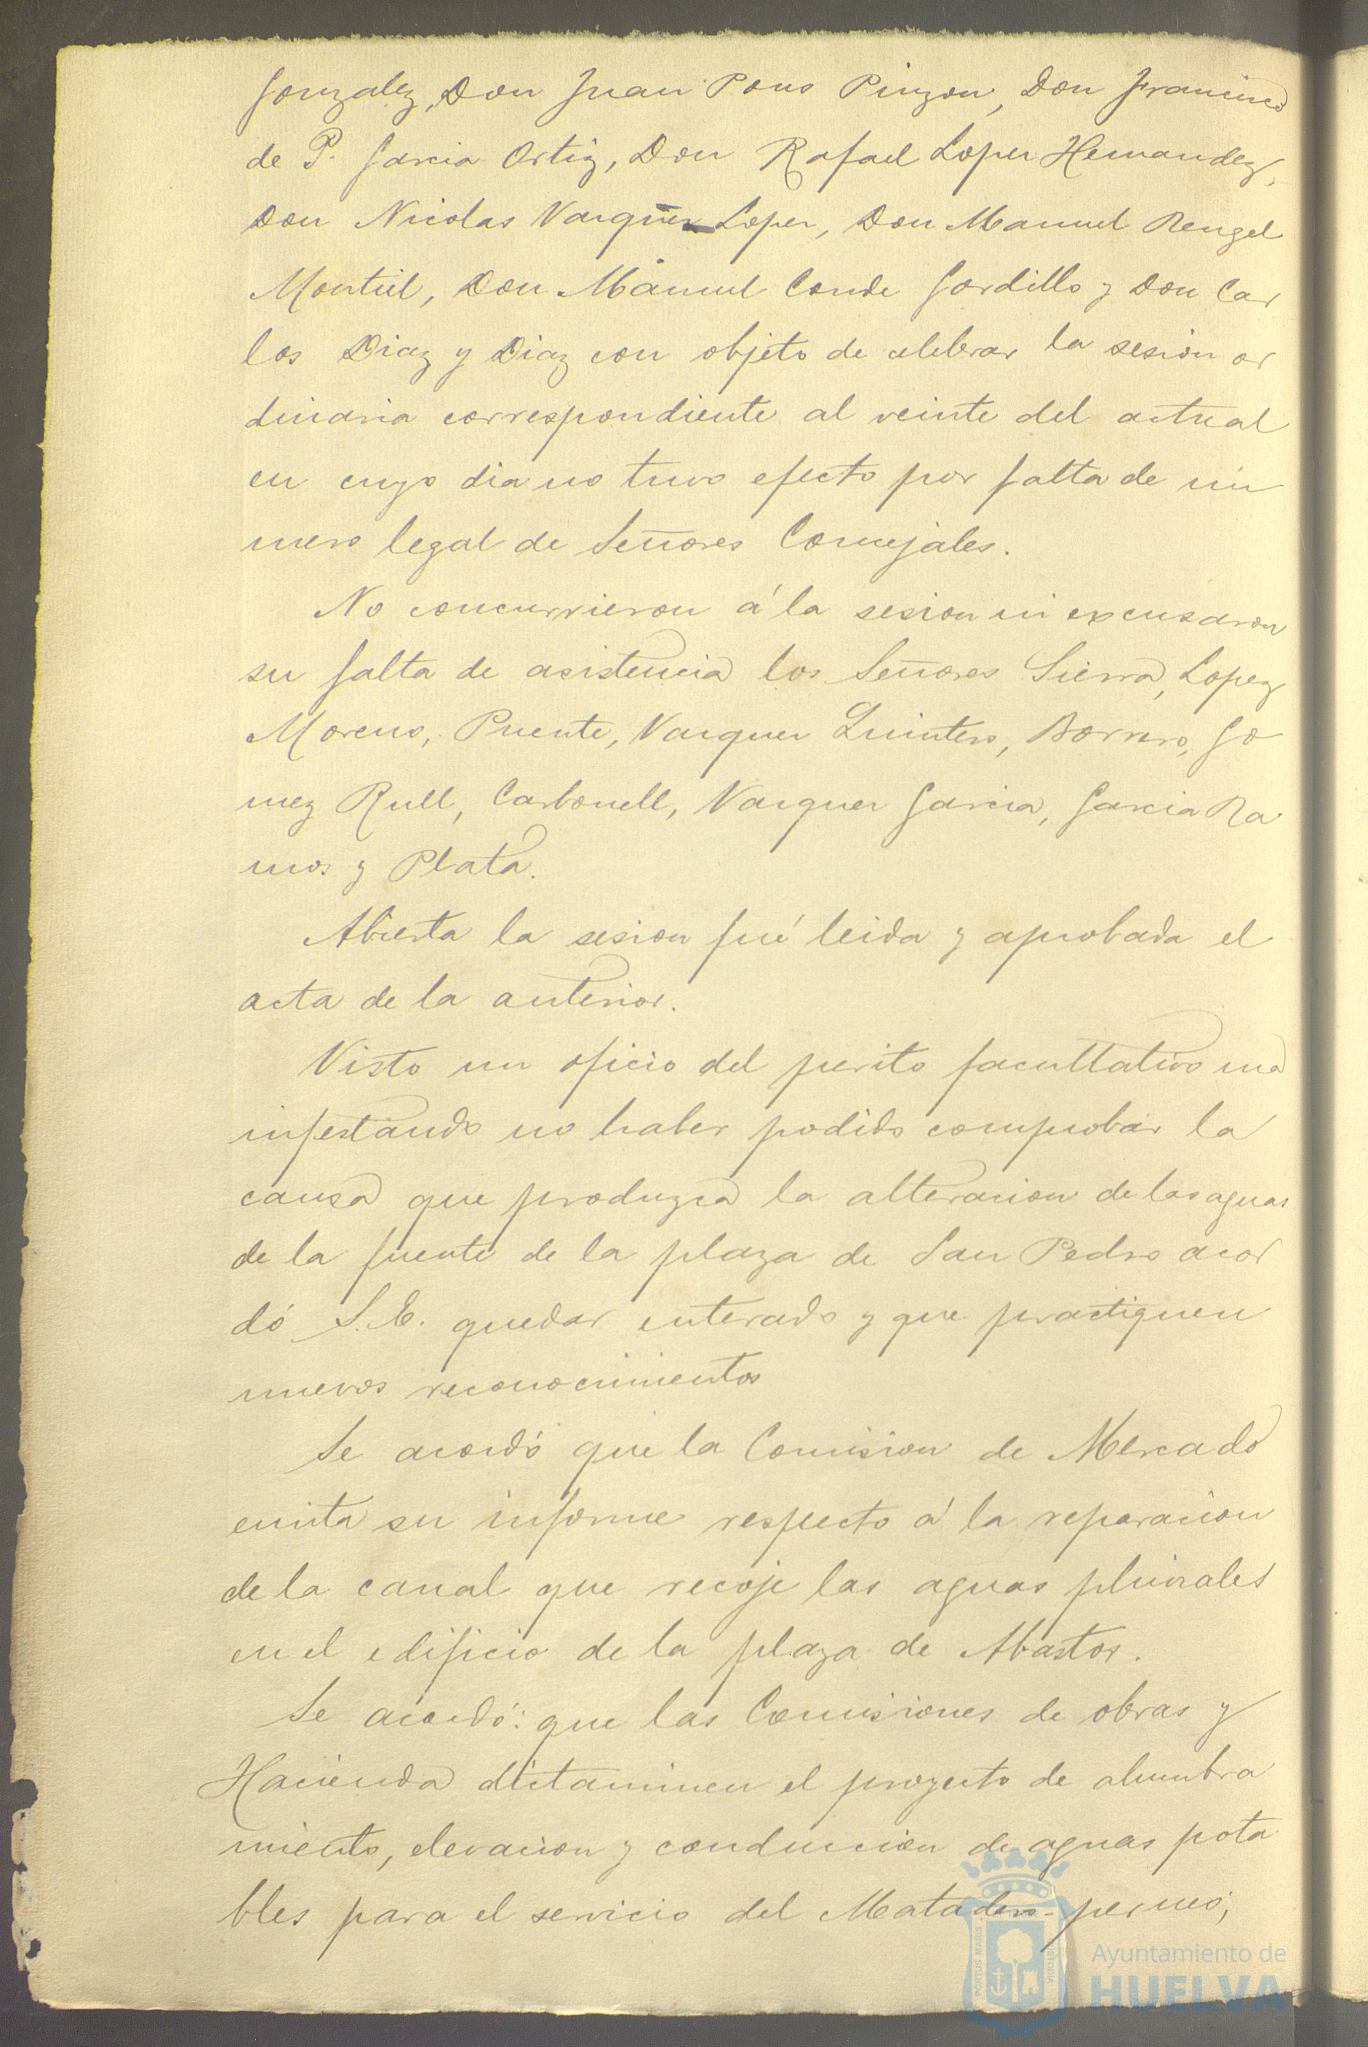 Gonzalez, Don Juan Pons Pinzon, Don Francisco
de P. Garcia Ortiz, Don Rafael Lopez Hernandez,
Don Nicolas Vazquez Lopez, Don Manuel Rengel
Montiel, Don Manuel Conde Gordillo y Don Car
los Diaz y Diaz con objeto de celebrar la sesion or
dinaria correspondiente al veinte del actual
en cuyo dia no tuvo efecto por falta de nú
mero legal de Señores Concejales.
No concurrieron á la sesion ni excusaron
su falta de asistencia los Señores Sierra, Lopez
Moreno, Puente, Vazquez Quintero, Borrero, Go
mez Rull, Carbonell, Vazquez Garcia, Garcia Ra
mos y Plata.
Abierta la sesion fué leida y aprobada el
acta de la anterior.
Visto un oficio del perito facultativo ma
nifestando no haber podido comprobar la
causa que produzca la alteracion de las aguas
de la fuente de la plaza de San Pedro acor
dó S.E. quedar enterado y que practiquen
nuevos reconocimientos
Se acordó que la Comision de Mercado
emita su informe respecto á la reparacion
de la canal que recoje las aguas pluviales
en el edificio de la plaza de Abastos.
Se acordó: que las Comisiones de obras y
Hacienda dictaminen el proyecto de alumbra
miento, elevacion y conduccion de aguas pota
bles para el servicio del Matadero
Ayuntamiento de
HUELVA